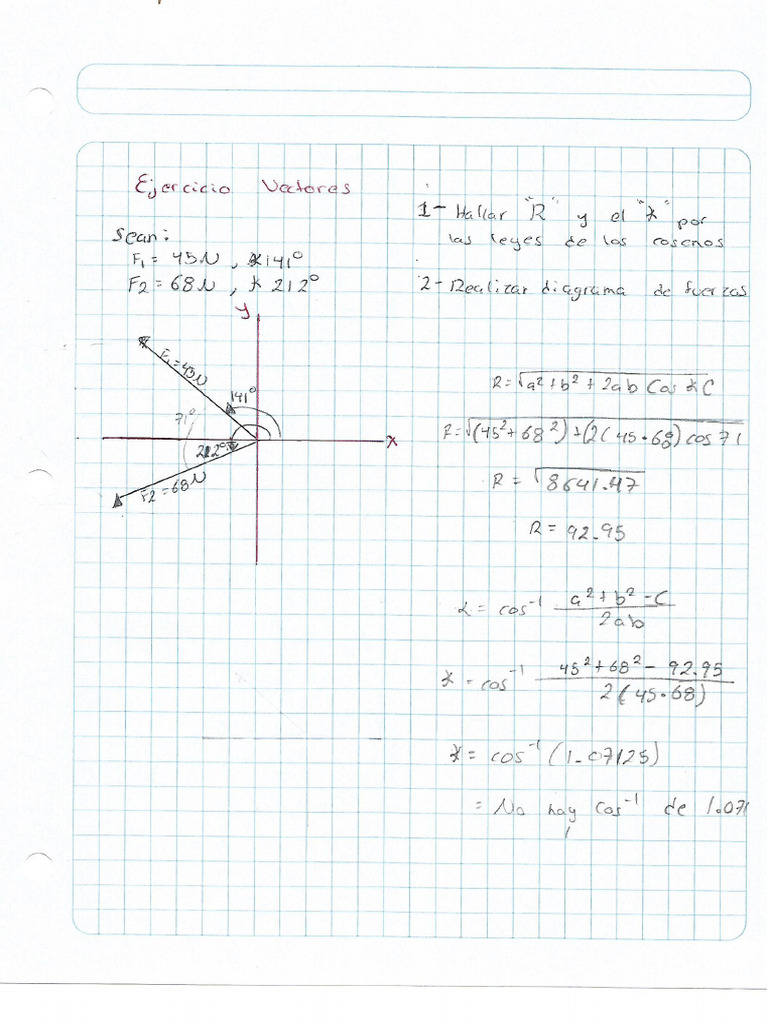 Ejercicio Vectores
Sean:
F1 = 45N , ∡141°
F2 = 68N , ∡ 212°
1- Hallar "R" y el "∡" por
las leyes de los cosenos
2- Realizar diagrama de fuerzas
y
F1=45N
141°
71°
x
212°
F2=68N
R=√a²+b²+2ab Cos ∡C
R=√(45²+68²)+(2(45·68)cos 71
R = √8641.47
R = 92.95
∡ = cos⁻¹ a²+b²-C
2ab
∡ = cos⁻¹ 45²+68²- 92.95
2(45·68)
∡= cos⁻¹(1.07125)
= No hay cos⁻¹ de 1.071